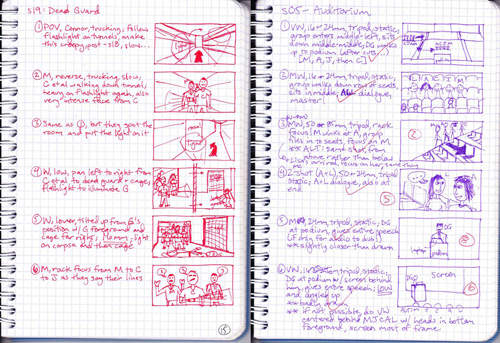 S19: Dead Guard
① POV, Connor, trucking, follow
flashlight in tunnels, make
this creepy, post-S18, slow...
② M, reverse, trucking, slow,
C et al walking down tunnel,
heavy on flashlight again, also
very intense face from C
③ Same as ①, but they spot the
room and put the light on it
④ W, low, pan left to right from
C et al to dead guard + cage,
flashlight to illuminate G
⑤ W, lower, tilted up from G's
position w/ G foreground and
cage far right, light
on corpse and then cage
⑥ M, rack focus from M to C
to J as they say their lines
15
S05 - Auditorium
① VW, 16 or 24mm, tripod, static,
group enters middle-left, sits
down middle-middle, DG walks
up to podium (after cut)
[M, A, J, then C]
② MW, 16 or 24mm, tripod, static,
group walks down row of seats,
sits in middle, ALL dialogue,
master!
③ MW, 50 or 85mm tripod, rack
focus, M winks at A, group
files in to seats, focus on M
and A but same shot, from
above rather than below
④ 2-shot (A+L), 50 or 85mm, tripod,
static, A+L dialogue, also at
end
5
⑤ M, 24mm, tripod, static, DG
at podium, gives entire speech
slightly closer than drawn
DG
laptop
podium
⑥ VW, tripod, static,
DG at podium w/ screen behind
him, gives entire speech, low
and angled up
DG
screen
6
* If at all possible, do VW
centered behind MJCAL
w/ heads in bottom
foreground, screen most of frame